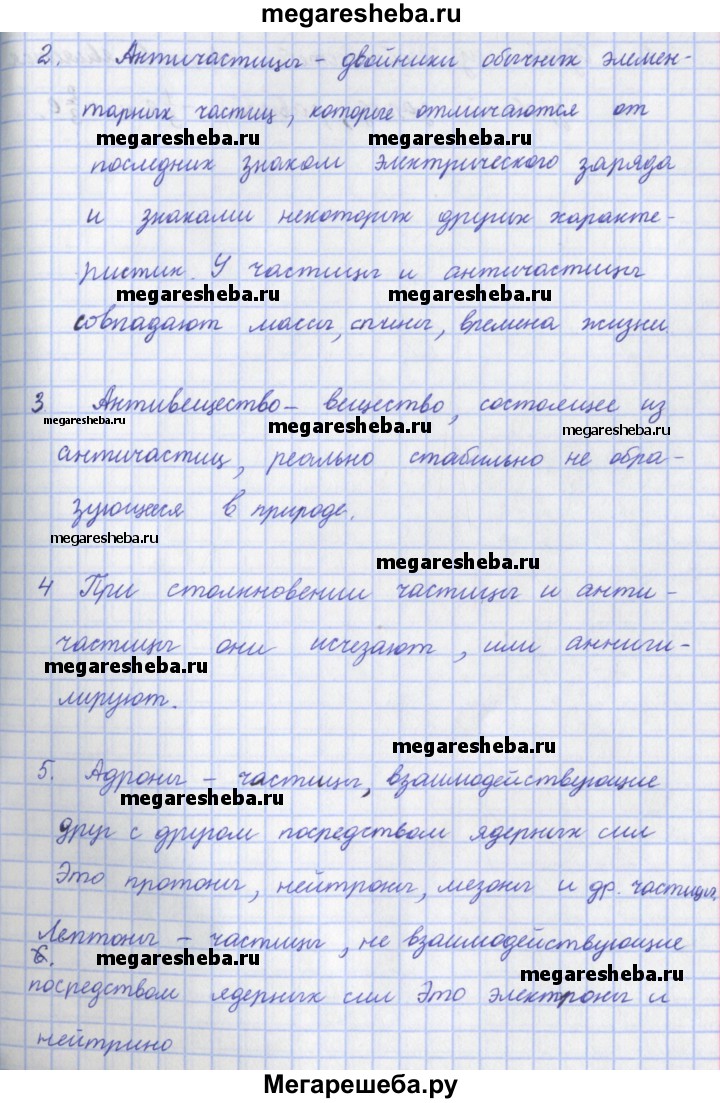 megaresheba.ru
2. Античастицы - двойники обычных элемен-
тарных частиц, которые отличаются от
megaresheba.ru megaresheba.ru
последних знаком электрического заряда
и знаками некоторых других характе-
ристик. У частицы и античастицы
megaresheba.ru megaresheba.ru
совпадают массы, спины, времена жизни.
3 Антивещество - вещество, состоящее из
megaresheba.ru megaresheba.ru megaresheba.ru
античастиц, реально стабильно не обра-
зующееся в природе.
megaresheba.ru
megaresheba.ru
4 При столкновении частицы и анти-
частицы они исчезают, или анниги-
megaresheba.ru
лируют.
megaresheba.ru
5. Адроны - частицы, взаимодействующие
megaresheba.ru
друг с другом посредством ядерных сил
Это протоны, нейтроны, мезоны и др. частицы.
Лептоны - частицы, не взаимодействующие
6. megaresheba.ru megaresheba.ru
посредством ядерных сил Это электроны и
нейтрино
Мегарешеба.ру